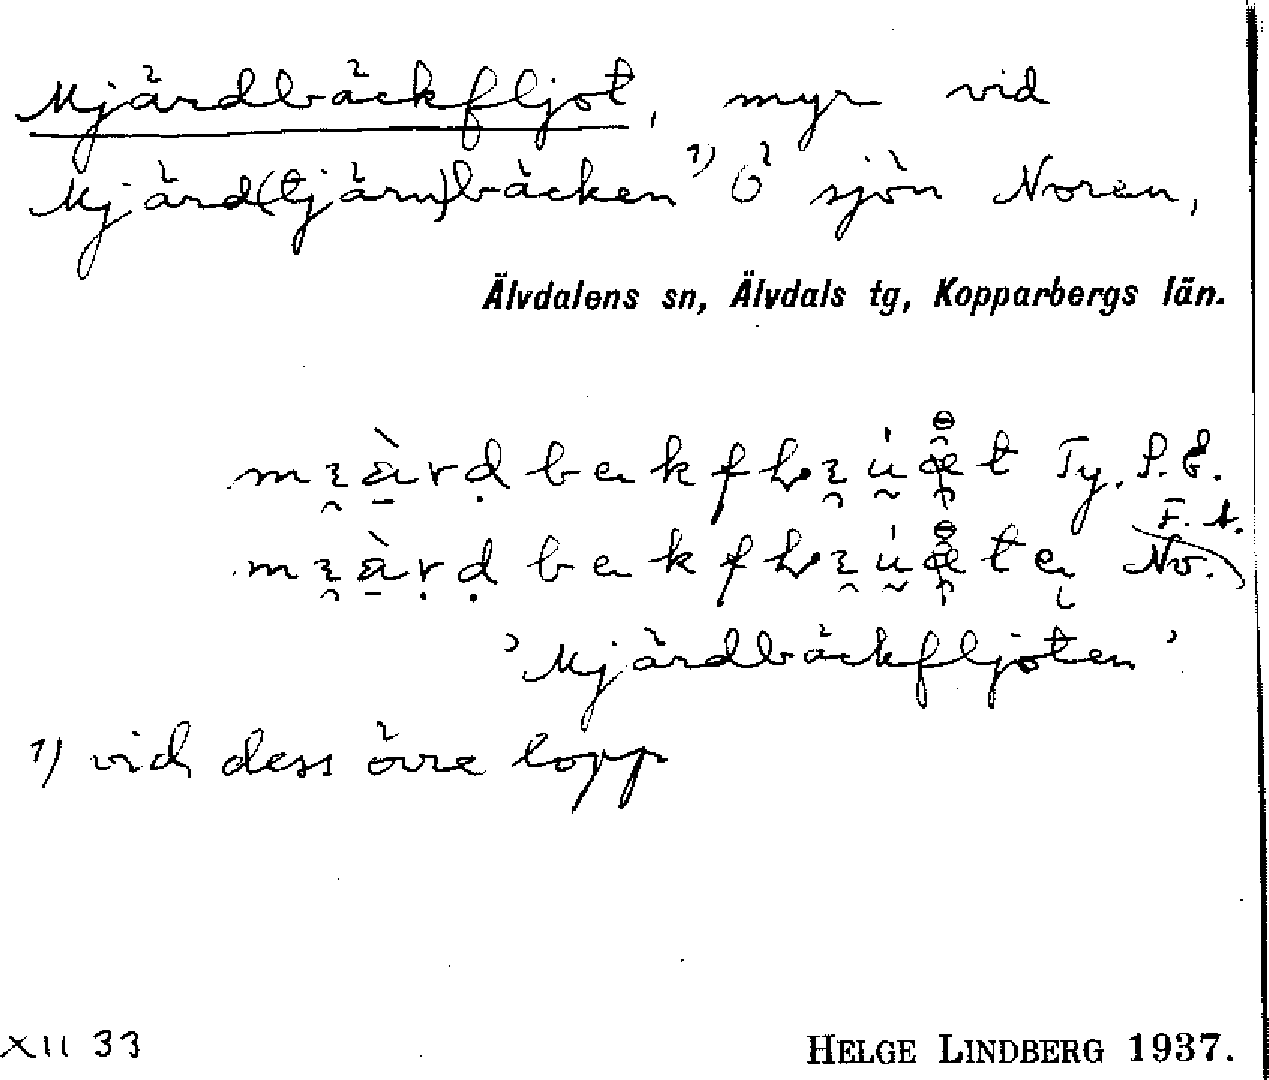 Mjärdbäckfljot, myr vid
Mjärd(tjärn)bäcken ¹) Ö sjön Noren,
Älvdalens sn, Älvdals tg, Kopparbergs län.
Ty. S. E.
F. A.
No.
'Mjärdbäckfljoten'
¹) vid dess övre lopp
XII 33
HELGE LINDBERG 1937.